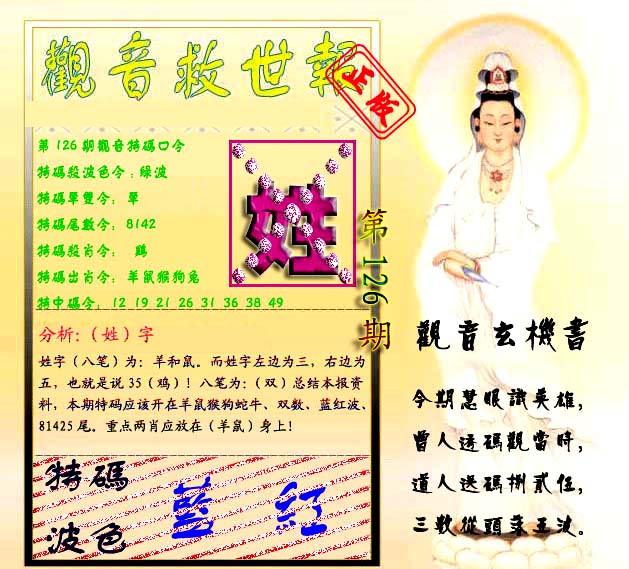 觀音救世報
正版
第126期觀音特碼口令
特碼殺波色令:綠波
特碼單雙令: 單
特碼尾數令: 8142
特碼殺肖令: 鷄
特碼出肖令: 羊鼠猴狗兔
特中碼令: 12 19 21 26 31 36 38 49
姓
第126期
分析:（姓）字
姓字（八笔）为：羊和鼠。而姓字左边为三，右边为
五，也就是说 35（鸡）！八笔为：（双）总结本报资
料，本期特码应该开在羊鼠猴狗蛇牛、双数、蓝红波、
81425 尾。重点两肖应放在（羊鼠）身上！
特碼
波色
藍 紅
觀音玄機書
今期慧眼識英雄，
曾人透碼觀當時，
道人送碼捌貳伍，
三數從頭落五波。